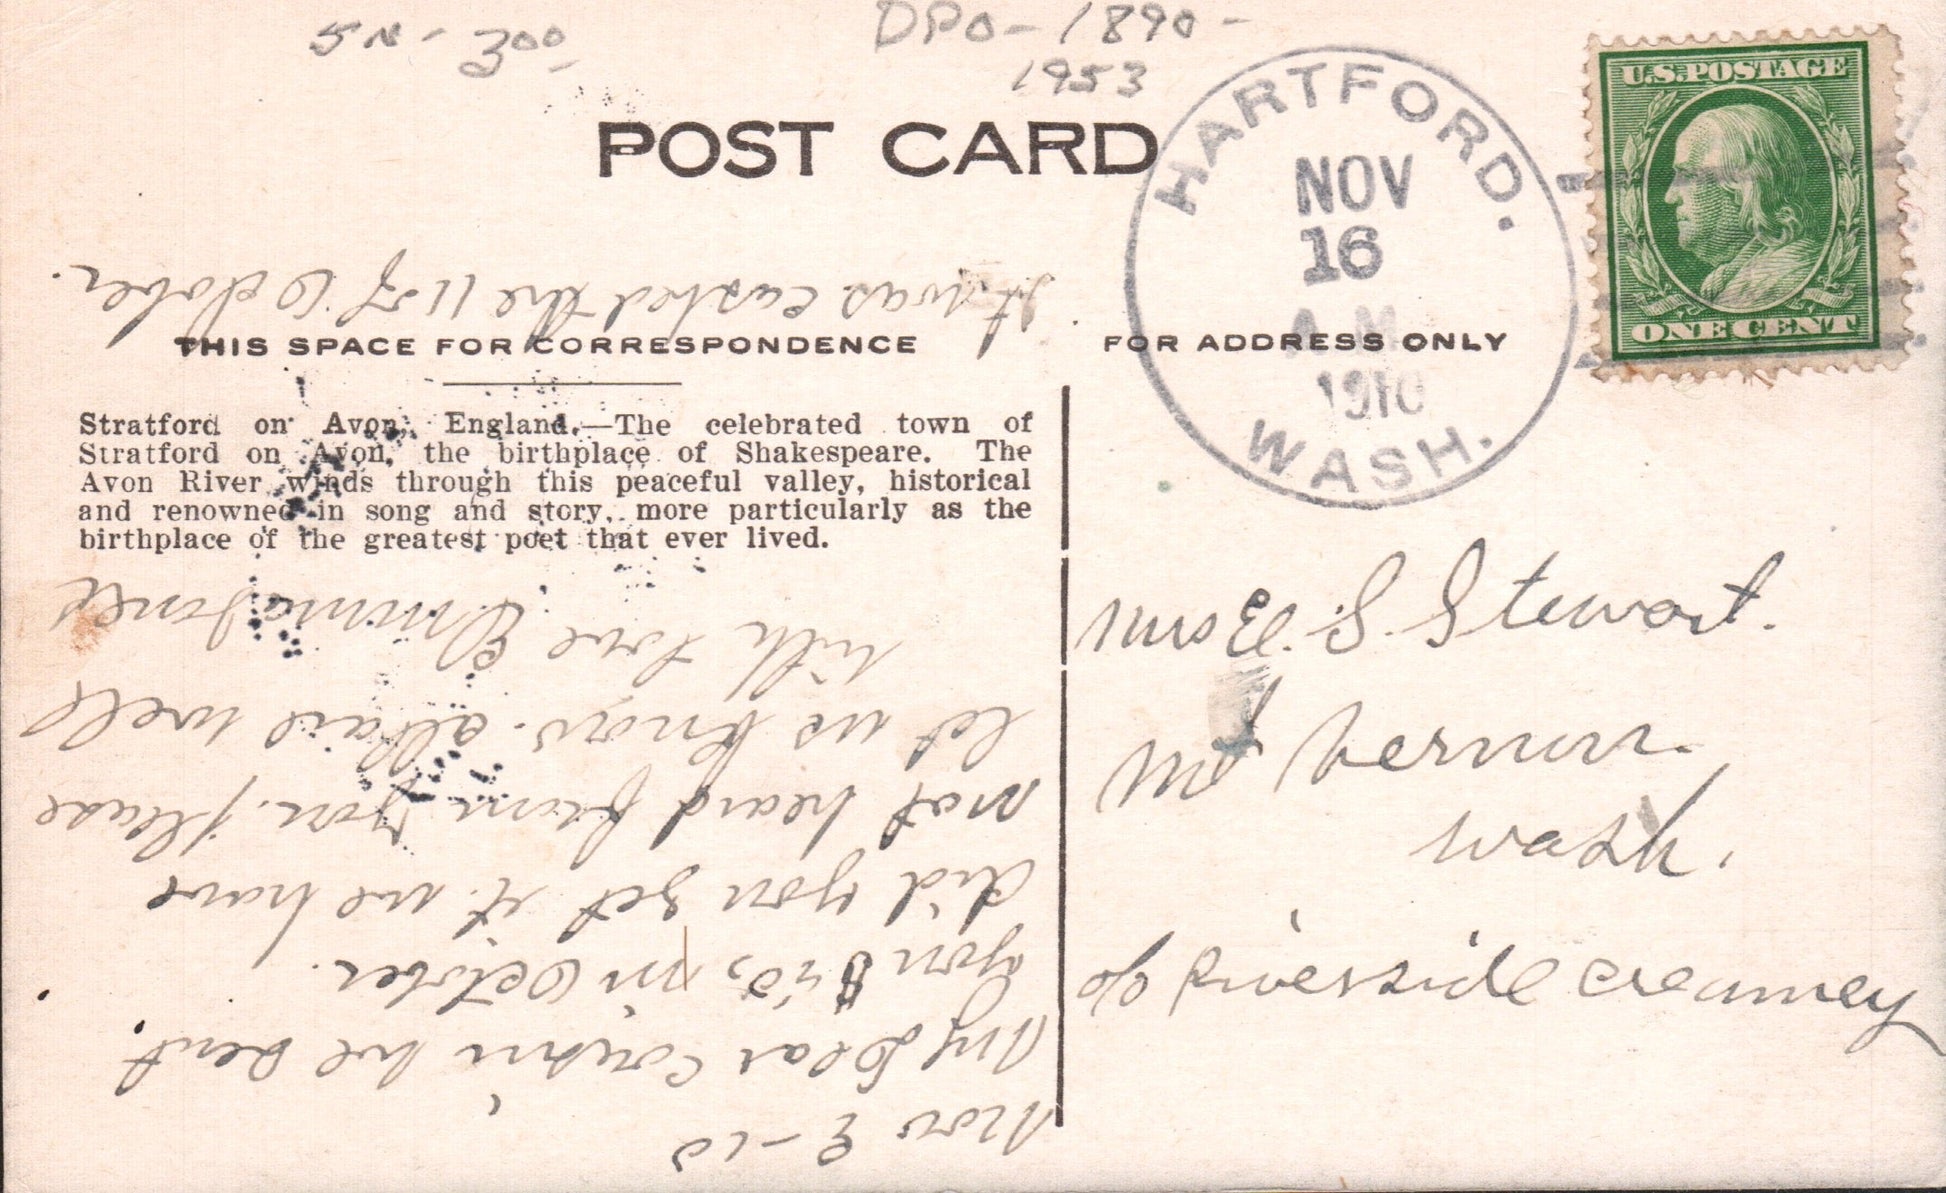 5N - 3⁰⁰
DPO - 1890 -
1953
POST CARD
HARTFORD.
NOV
16
A.M.
1910
WASH.
U.S. POSTAGE
ONE CENT
THIS SPACE FOR CORRESPONDENCE
FOR ADDRESS ONLY
Stratford on Avon, England.—The celebrated town of
Stratford on Avon, the birthplace of Shakespeare. The
Avon River winds through this peaceful valley, historical
and renowned in song and story, more particularly as the
birthplace of the greatest poet that ever lived.
Mrs E. S. Stewart.
Mt Vernon.
Wash.
c/o Riverside Creamery
Nov
My Dear Cousin we sent
you in October.
did you get it. we have
not heard from you. please
let us know. all air well
with love Emma Jones
it was cashed the 11 of October.